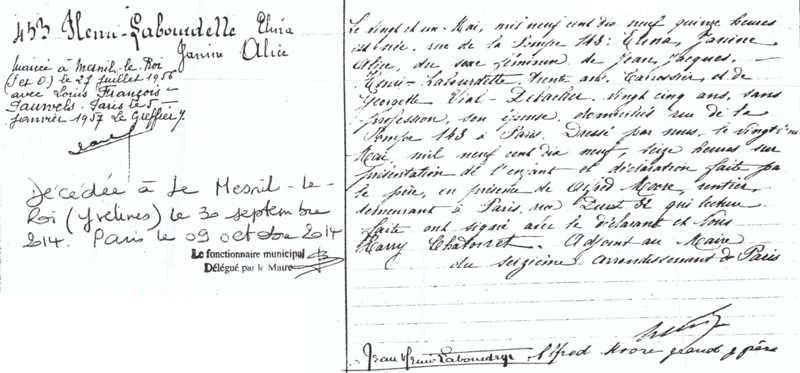 453 Henri-Labourdette Elina
Janine Alice
Mariée à Mesnil-le-Roi
(S et O.) le 27 juillet 1956
avec Louis François
Pauwels. Paris le 5
Janvier 1957 Le Greffier
Décédée à Le Mesnil-le-
Roi (Yvelines) le 30 septembre
2014. Paris le 09 octobre 2014
Le fonctionnaire municipal
Délégué par le Maire
Le vingt et un Mai, mil neuf cent dix neuf quinze heures
est née, rue de la Pompe 143: Elina, Janine
Alice, du sexe féminin de Jean, Jacques,
Henri-Labourdette, trente ans, Carrossier, et de
Georgette Vial-Debacker, vingt cinq ans, sans
profession, son épouse, domiciliés rue de la
Pompe 143 à Paris. Dressé par nous, le vingt
Mai, mil neuf cent dix neuf, seize heures sur
présentation de l'enfant et déclaration faite par
le père, en présence de Alfred Moore, rentier,
demeurant à Paris, rue 32 qui lecture
faite ont signé avec le déclarant et Nous
Harry Adjoint au Maire
du seizième arrondissement de Paris
Jean Henri Labourdette Alfred Moore grand père